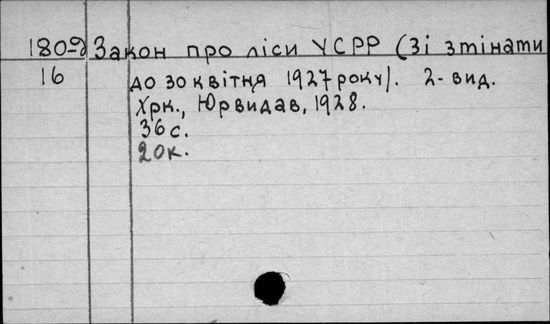 180-д Закон про ліси УСРР (Зі змінати
16 до 30 квітня 1927 року). 2-вид.
Хрк., Юрвидав, 1928.
36 с.
20к.